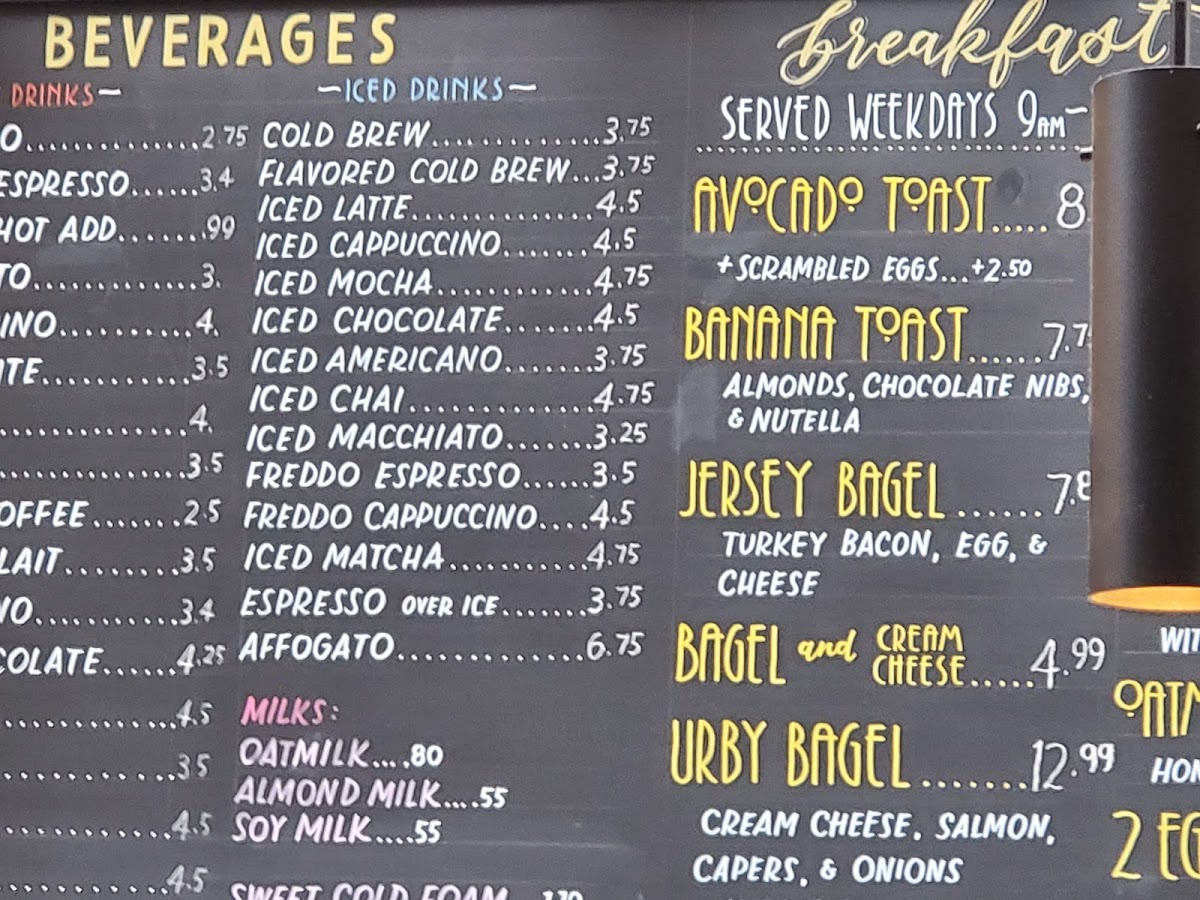 BEVERAGES
DRINKS
O..............2.75
ESPRESSO......3.4
HOT ADD.......99
TO.............3.
INO..........4.
TE............3.5
..............4.
..............3.5
OFFEE.......2.5
LAIT.........3.5
NO...........3.4
COLATE......4.25
.............4.5
.............3.5
.............4.5
.............4.5
ICED DRINKS
COLD BREW.............3.75
FLAVORED COLD BREW...3.75
ICED LATTE..............4.5
ICED CAPPUCCINO.......4.5
ICED MOCHA............4.75
ICED CHOCOLATE.......4.5
ICED AMERICANO.......3.75
ICED CHAI..............4.75
ICED MACCHIATO.......3.25
FREDDO ESPRESSO......3.5
FREDDO CAPPUCCINO....4.5
ICED MATCHA...........4.75
ESPRESSO OVER ICE.......3.75
AFFOGATO...............6.75
MILKS:
OATMILK....80
ALMOND MILK....55
SOY MILK....55
SWEET COLD FOAM
breakfast
SERVED WEEKDAYS 9AM-
AVOCADO TOAST.....8
+SCRAMBLED EGGS...+2.50
BANANA TOAST......7.7
ALMONDS, CHOCOLATE NIBS,
& NUTELLA
JERSEY BAGEL......7.8
TURKEY BACON, EGG, &
CHEESE
BAGEL and CREAM CHEESE.....4.99
URBY BAGEL.......12.99
CREAM CHEESE, SALMON,
CAPERS, & ONIONS
WIT
OATM
HON
2 EG